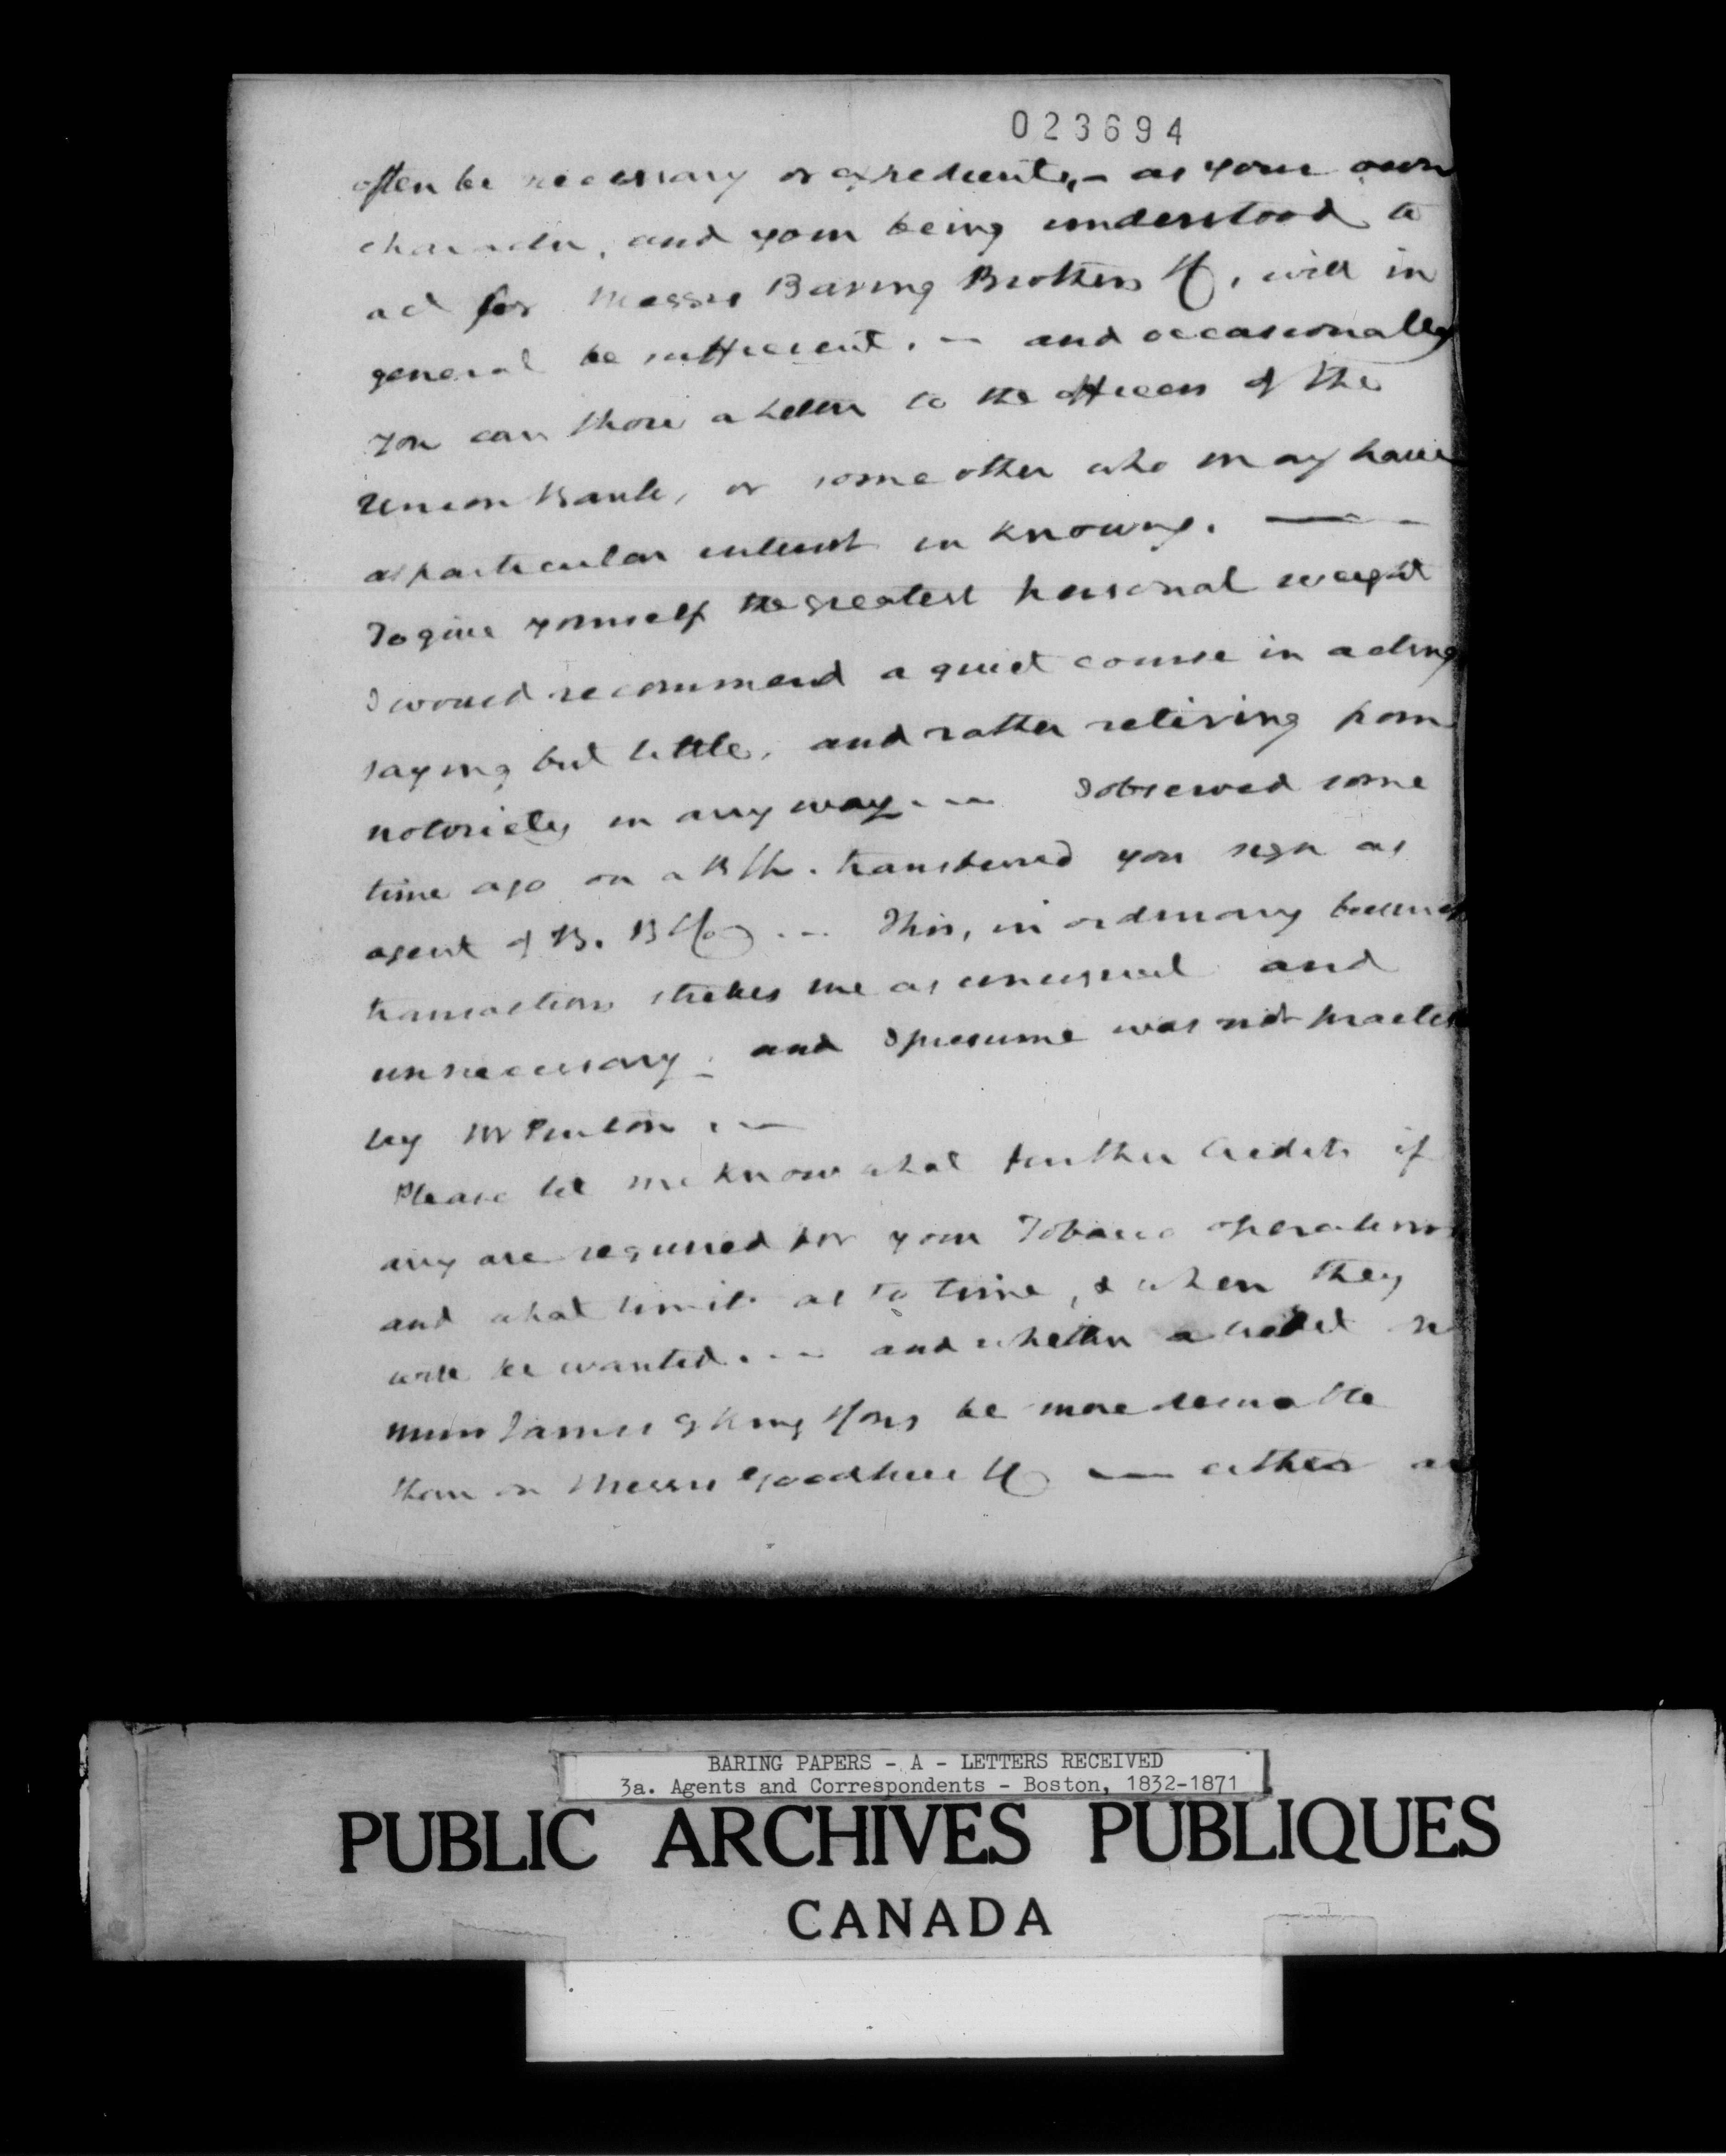 023694
often be necessary or expedient, - as your own
character, and your being understood to
act for Messrs Baring Brothers & Co, will in
general be sufficient. — and occasionally
you can show a letter to the officers of the
Union Bank, or some other who may have
a particular interest in knowing. —
To give yourself the greatest personal weight
I would recommend a quiet course in acting
saying but little, and rather retiring from
notoriety in any way. — I observed some
time ago on a transferred you sign as
agent of B. B & Co — This, in ordinary business
transactions strikes me as unusual and
unnecessary - and I presume was not practic
by Mr —
Please let me know what further Credits if
any are required for your Tobacco operations
and what limit as to time, & when they
will be wanted. — and whether a credit on
Messrs James G King & Sons be more desirable
than on Messrs Goodhue & Co — either as
BARING PAPERS - A - LETTERS RECEIVED
3a. Agents and Correspondents - Boston, 1832-1871
PUBLIC ARCHIVES PUBLIQUES
CANADA